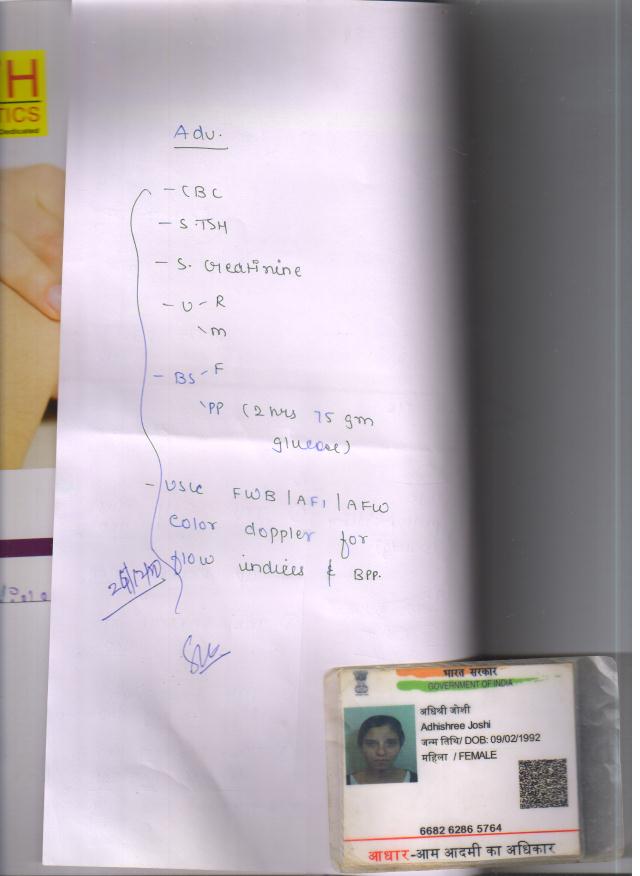 H
TICS
Dedicated
Adv.
- CBC
- S.TSH
- S. Creatinine
- U - R
\ m
- BS - F
\ PP (2 hrs 75 gm
glucose)
- USG FWB / AFI / AFW
color doppler for
flow indices & BPP.
भारत सरकार
GOVERNMENT OF INDIA
अधिश्री जोशी
Adhishree Joshi
जन्म तिथि/ DOB: 09/02/1992
महिला / FEMALE
6682 6286 5764
आधार-आम आदमी का अधिकार